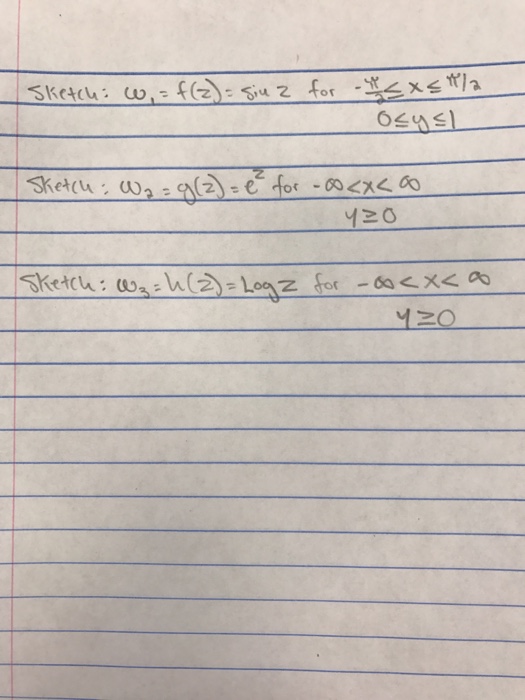 Sketch: ω₁ = f(z) = sin z for -π/2 ≤ x ≤ π/2
0 ≤ y ≤ 1
Sketch: ω₂ = g(z) = e^z for -∞ < x < ∞
y ≥ 0
Sketch: ω₃ = h(z) = Log z for -∞ < x < ∞
y ≥ 0